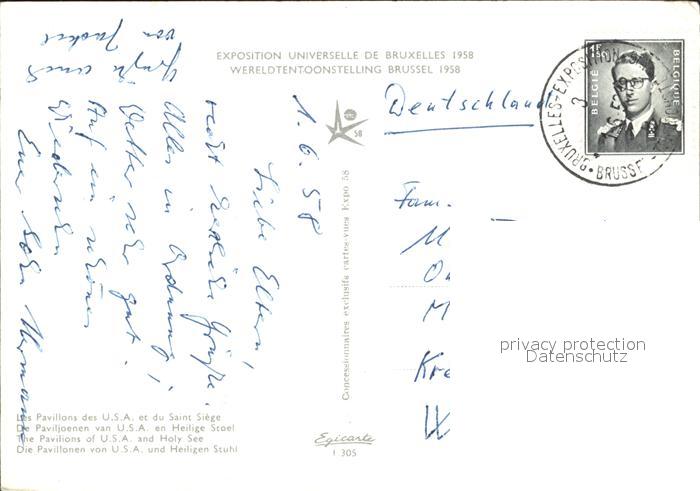 EXPOSITION UNIVERSELLE DE BRUXELLES 1958
WERELDTENTOONSTELLING BRUSSEL 1958
58
1F 50
BELGIË
BELGIQUE
BRUXELLES-EXPOSITION
BRUSSEL
Deutschland
1. 6. 58
Liebe Eltern,
recht herzliche Grüße.
Alles in Ordnung;
Wetter sehr gut.
Auf ein schönes
Wiedersehn
Euer Sohn Hermann
Fam.
M
On
M
Kre
privacy protection
Datenschutz
Concessionnaires exclusifs cartes-vues Expo 58
Les Pavillons des U.S.A. et du Saint Siège
De Paviljoenen van U.S.A. en Heilige Stoel
The Pavilions of U.S.A. and Holy See
Die Pavillonen von U.S.A. und Heiligen Stuhl
Egicarte
1 305